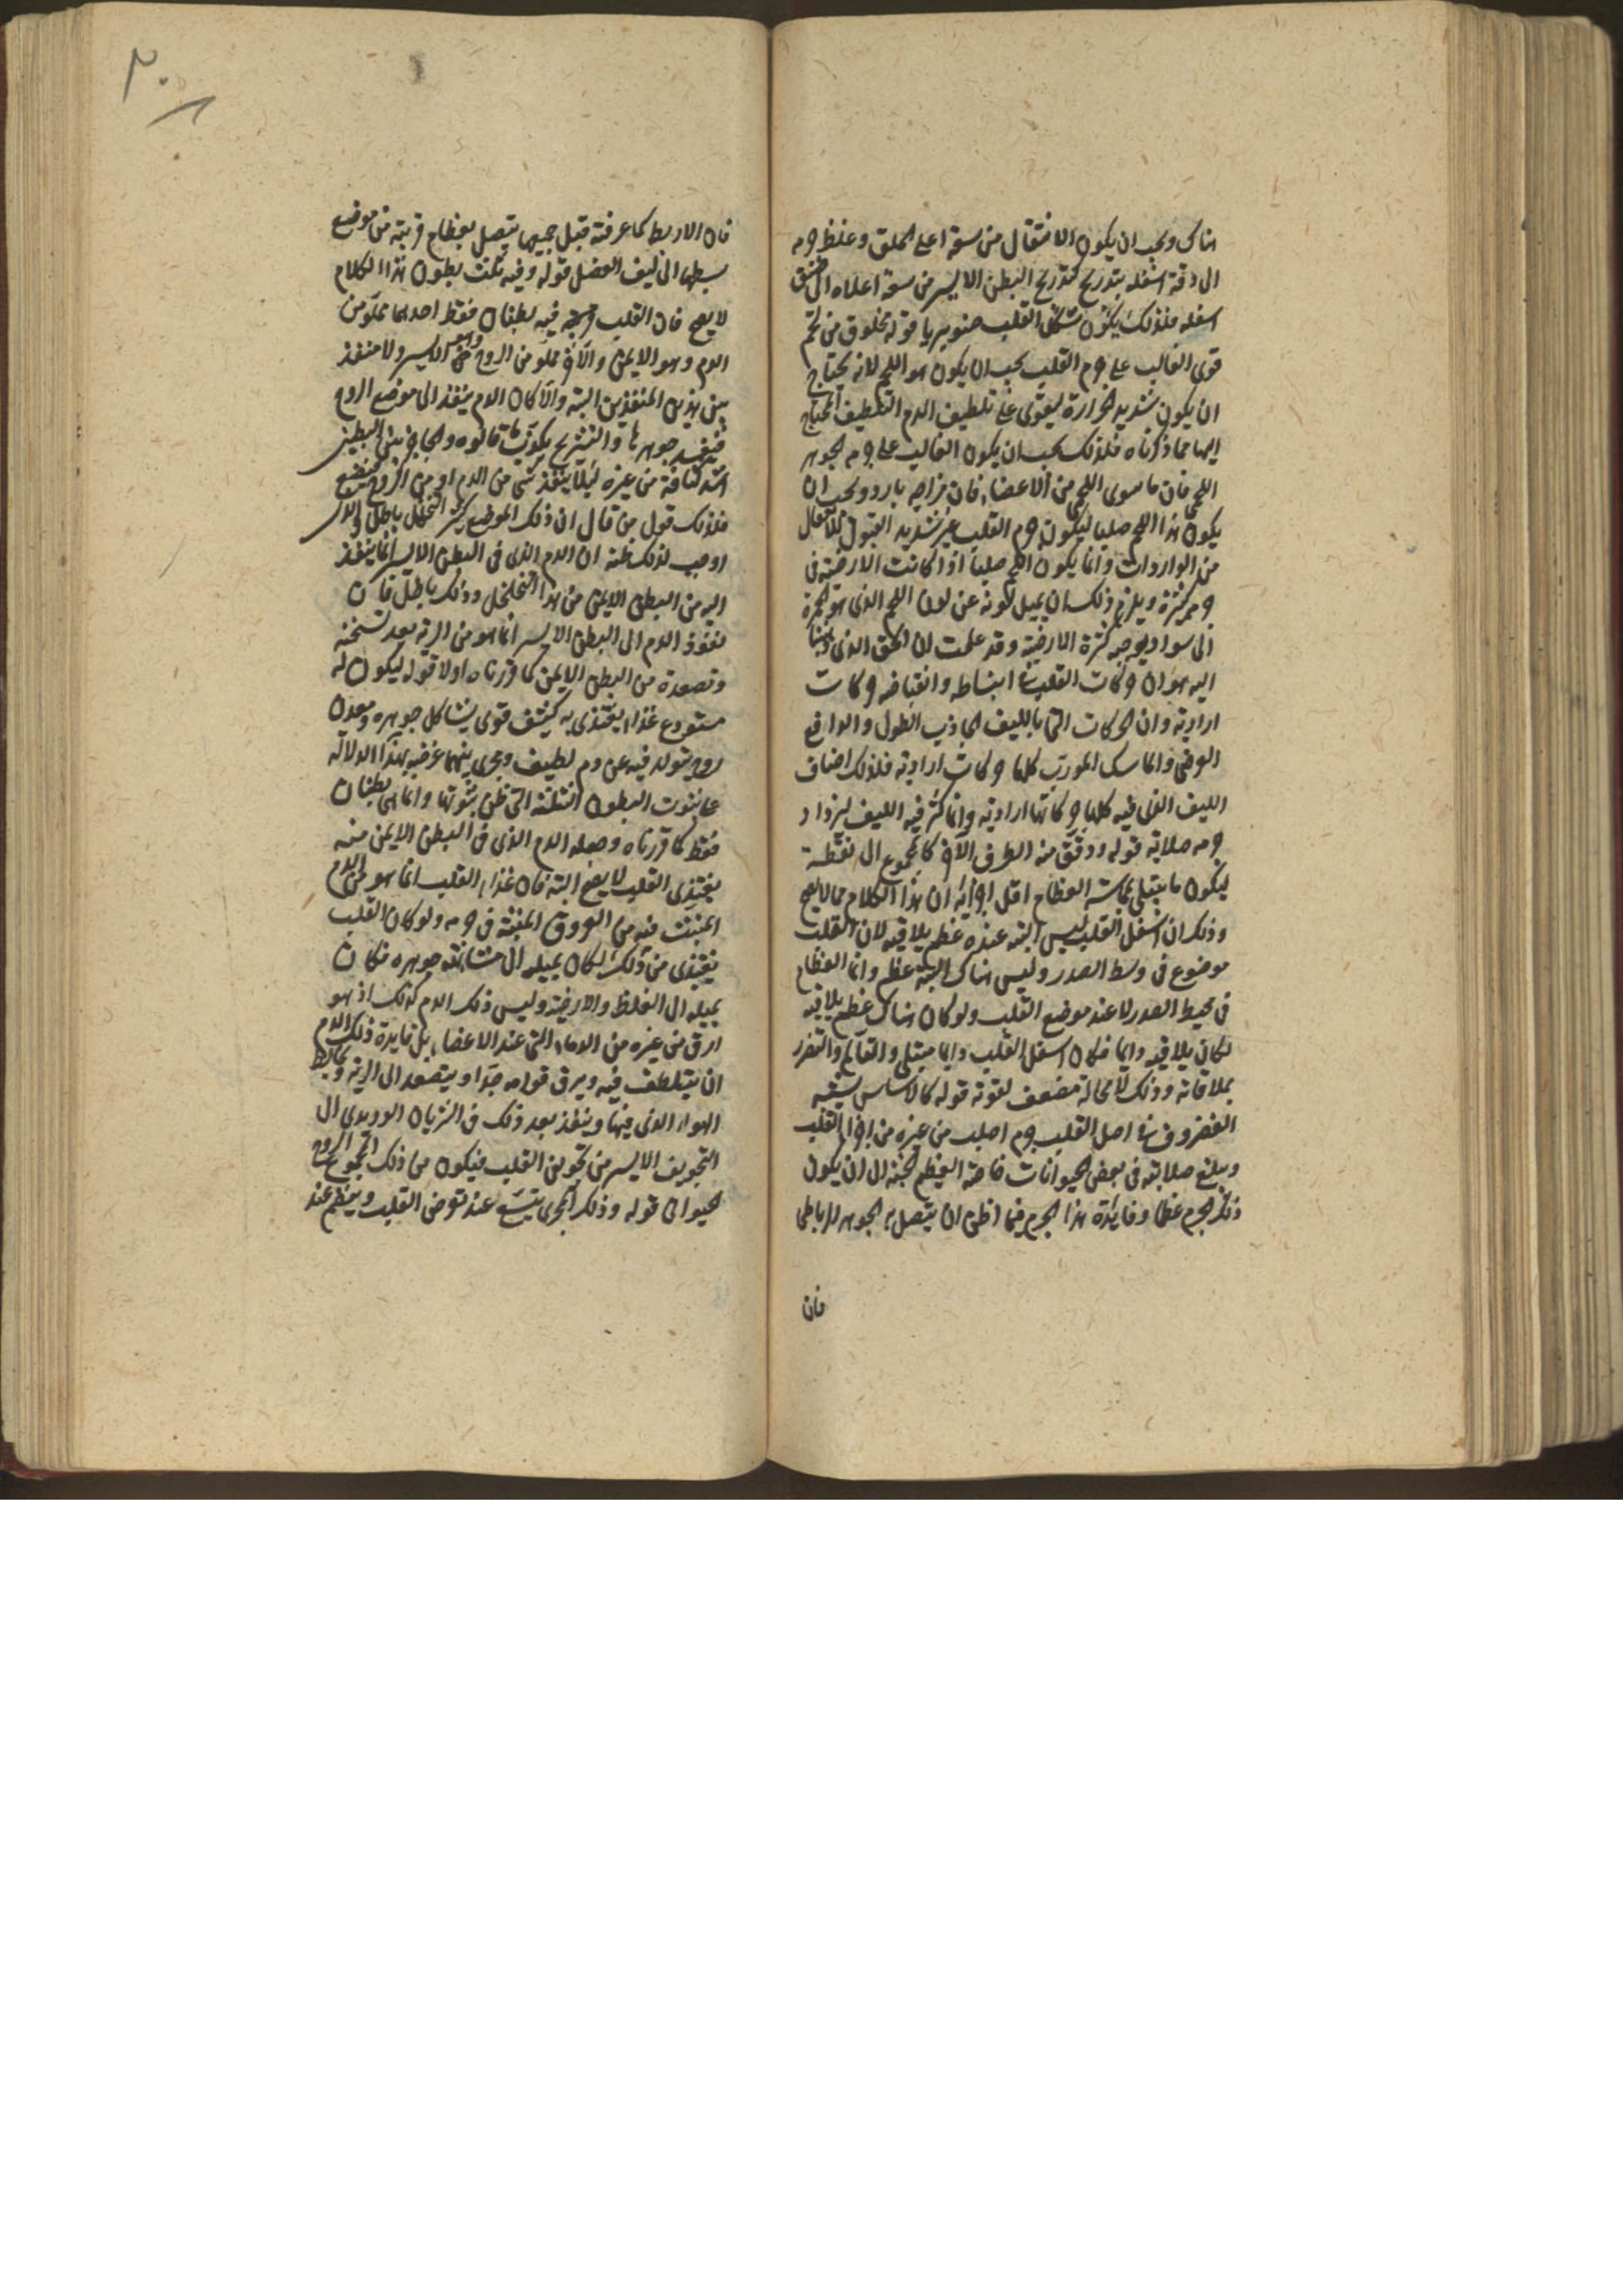 هناك ويجب ان يكون الانتقال من سعة اعلى الحلق وغلظ جرمه
الى دقة اسفله بتدريج كتدريج البطن الايسر من سعة اعلاه الى ضيق
اسفله فلذلك يكون شكل القلب صنوبريا قوله مخلوق من لحم
قوى الغالب على جرم القلب يجب ان يكون هو اللحم لانه يحتاج
ان يكون شديد الحرارة ليقوى على تلطيف الدم التلطيف المحتاج
اليها مما ذكرناه فلذلك يجب ان يكون الغالب على جرمه الجوهر
اللحمى فان ما سوى اللحمى من الاعضاء فان مزاجه بارد ويجب ان
يكون هذا اللحم صلبا ليكون جرم القلب غير شديد القبول للانفعال
من الواردات وانما يكون اللحم صلبا اذا كانت الارضية فى
جرمه كثيرة ويلزم ذلك ان يميل لونه عن لون اللحم الذى هو الحمرة
الى سواد يوجبه كثرة الارضية وقد علمت ان الحق الذى ذهبنا
اليه هو ان حركات القلب انبساطه وانقباضه حركات
ارادية وان الحركات التى بالليف الجاذب الطول والدافع
العرضى والماسك المورب كلها حركات ارادية فلذلك اصناف
الليف التى فيه كلها حركاتها ارادية وانما كثر فيه الليف ليزداد
جرمه صلابة قوله ودقق منه الطرف الآخر كالمجموع الى نقطة
ليكون ما يبتلى بمماسة العظام اقل اجزائه ان هذا الكلام مما لا يصح
وذلك ان اسفل القلب ليس البتة عنده عظم يلاقيه لان القلب
موضوع فى وسط الصدر وليس هناك البتة عظم وانما العظام
فى محيط الصدر لا عند موضع القلب ولو كان هناك عظم يلاقيه
لكان يلاقيه دايما فكان اسفل القلب دايما مبتلى والتألم والتضرر
بملاقاته وذلك لا محالة مضعف لقوته قوله كالاساس يشبه
الغضروف هذا اصل القلب جرم اصلب من غيره من اجزاء القلب
ويبلغ صلابته فى بعض الحيوانات خاصة العظيم الجثة الى ان يكون
ذلك الجرم عظما وفايدة هذا الجرم فيما اظن ان يتصل به الجوهر الرباطى
فان
٣٠
فان الاربطة كما عرفته قبل جميعها يتصل بعظام قريبة من موضع
بسطها الى ليف العضل قوله وفيه ثلث بطون هذا الكلام
لا يصح فان القلب فيه بطنان فقط احدهما مملو من
الدم وهو الايمن والآخر مملو من الروح وهو الايسر ولا منفذ
بين هذين المنفذين البتة والا كان الدم ينفذ الى موضع الروح
فيفسد جوهرها والتشريح يكذب ما قالوه والحاجز بين البطنين
اشد كثافة من غيره لئلا ينفذ شى من الدم او من الروح فيضيع
فلذلك قول من قال ان ذلك الموضع كثير التخلخل باطل والذى
اوجب له ذلك ظنه ان الدم الذى فى البطن الايسر انما ينفذ
اليه من البطن الايمن من هذا التخلخل وذلك باطل فان
نفوذ الدم الى البطن الايسر انما هو من الرية بعد تسخنه
وتصعده من البطن الايمن كما قررناه اولا قوله ليكون له
مستودع غذاء يغتذى به كثيف قوى يشاكل جوهره ومعدن
روح يتولد فيه عن دم لطيف ومجرى بينهما غرضه بهذا الدلالة
على ثبوت البطون الثلثة التى ظن ثبوتها وانما هى بطنان
فقط كما قررناه وجعله الدم الذى فى البطن الايمن منه
يغتذى القلب لا يصح البتة فان غذاء القلب انما هو من الدم
المنبث فيه من العروق المنبثة فى جرمه ولو كان القلب
يغتذى من ذلك لكان يميله الى مشابهة جوهره فكان
يميله الى الغلظ والارضية وليس ذلك الدم كذلك اذ هو
ارق من غيره من الدماء التى عند الاعضاء بل فايدة ذلك الدم
ان يتلطف فيه ويرق قوامه جدا ويتصعد الى الرية ويخالط
الهواء الذى فيها وينفذ بعد ذلك فى الشريان الوريدى الى
التجويف الايسر من تجويفى القلب فيكون من ذلك المجموع الروح
الحيوانى قوله وذلك المجرى يتسع عند تعرض القلب وينضم عند